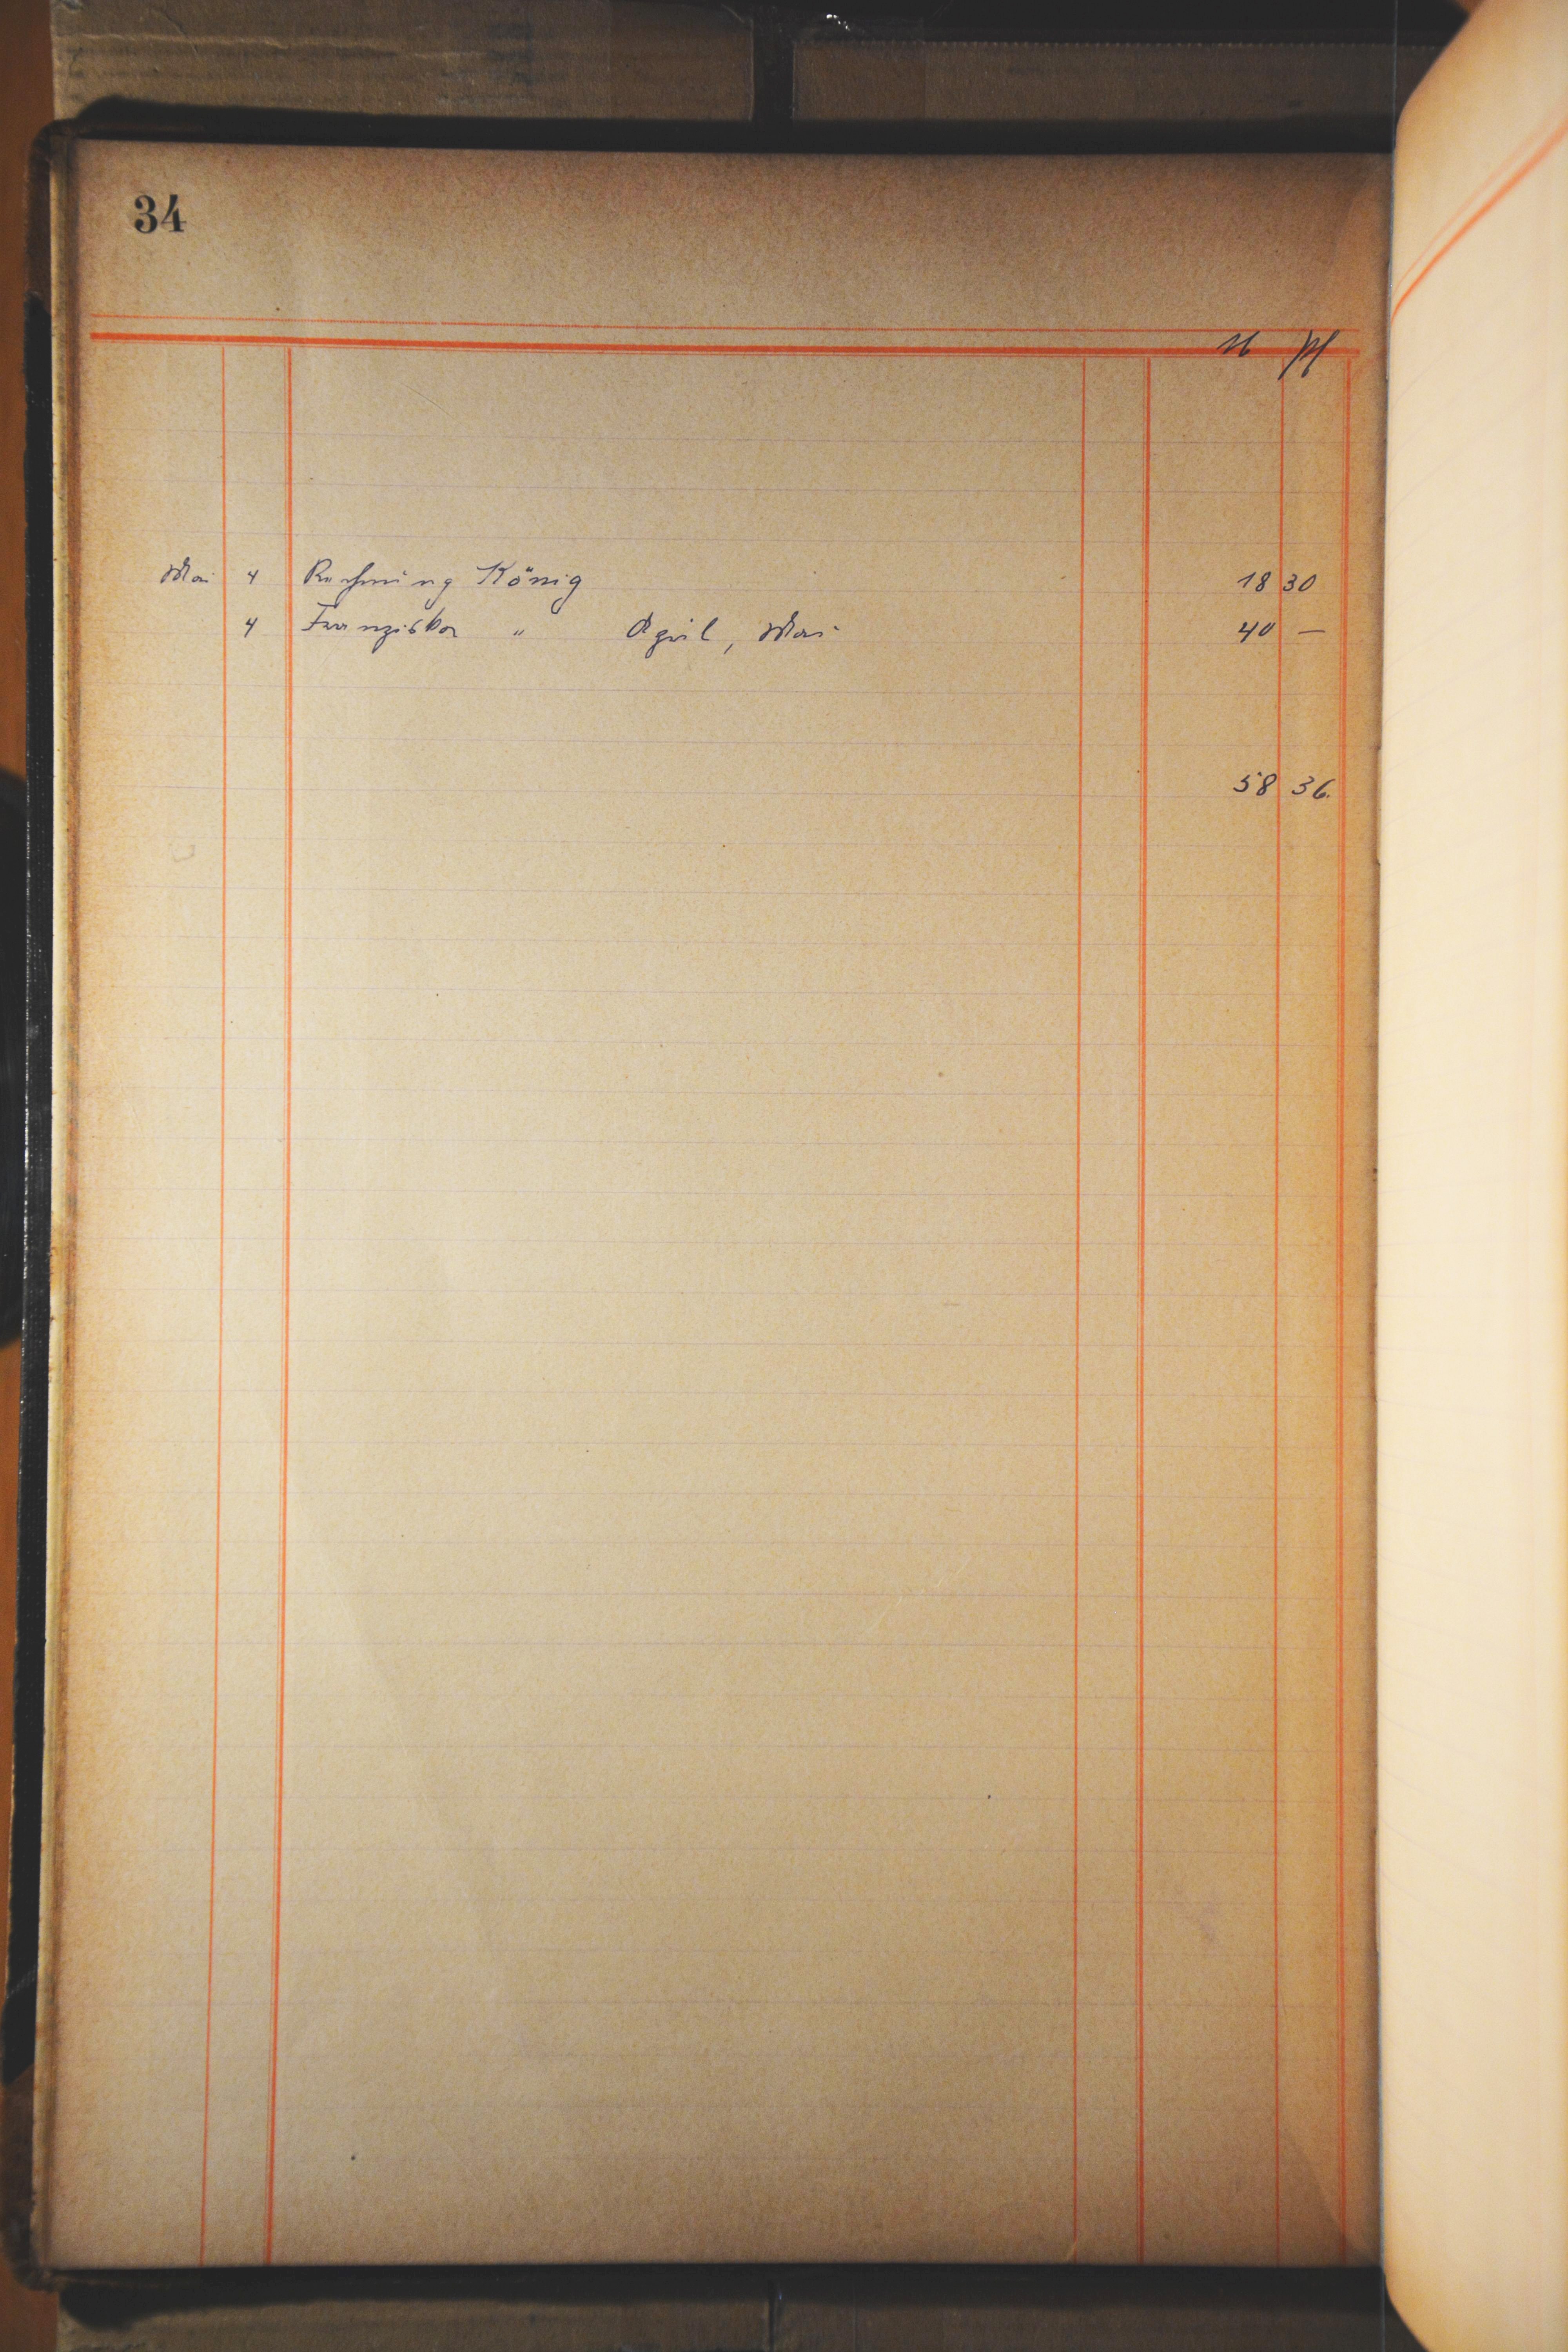 34
M Pf
Mai 4 Rechnung König 18 30
4 Franziska " April, Mai 40 —
58 36.